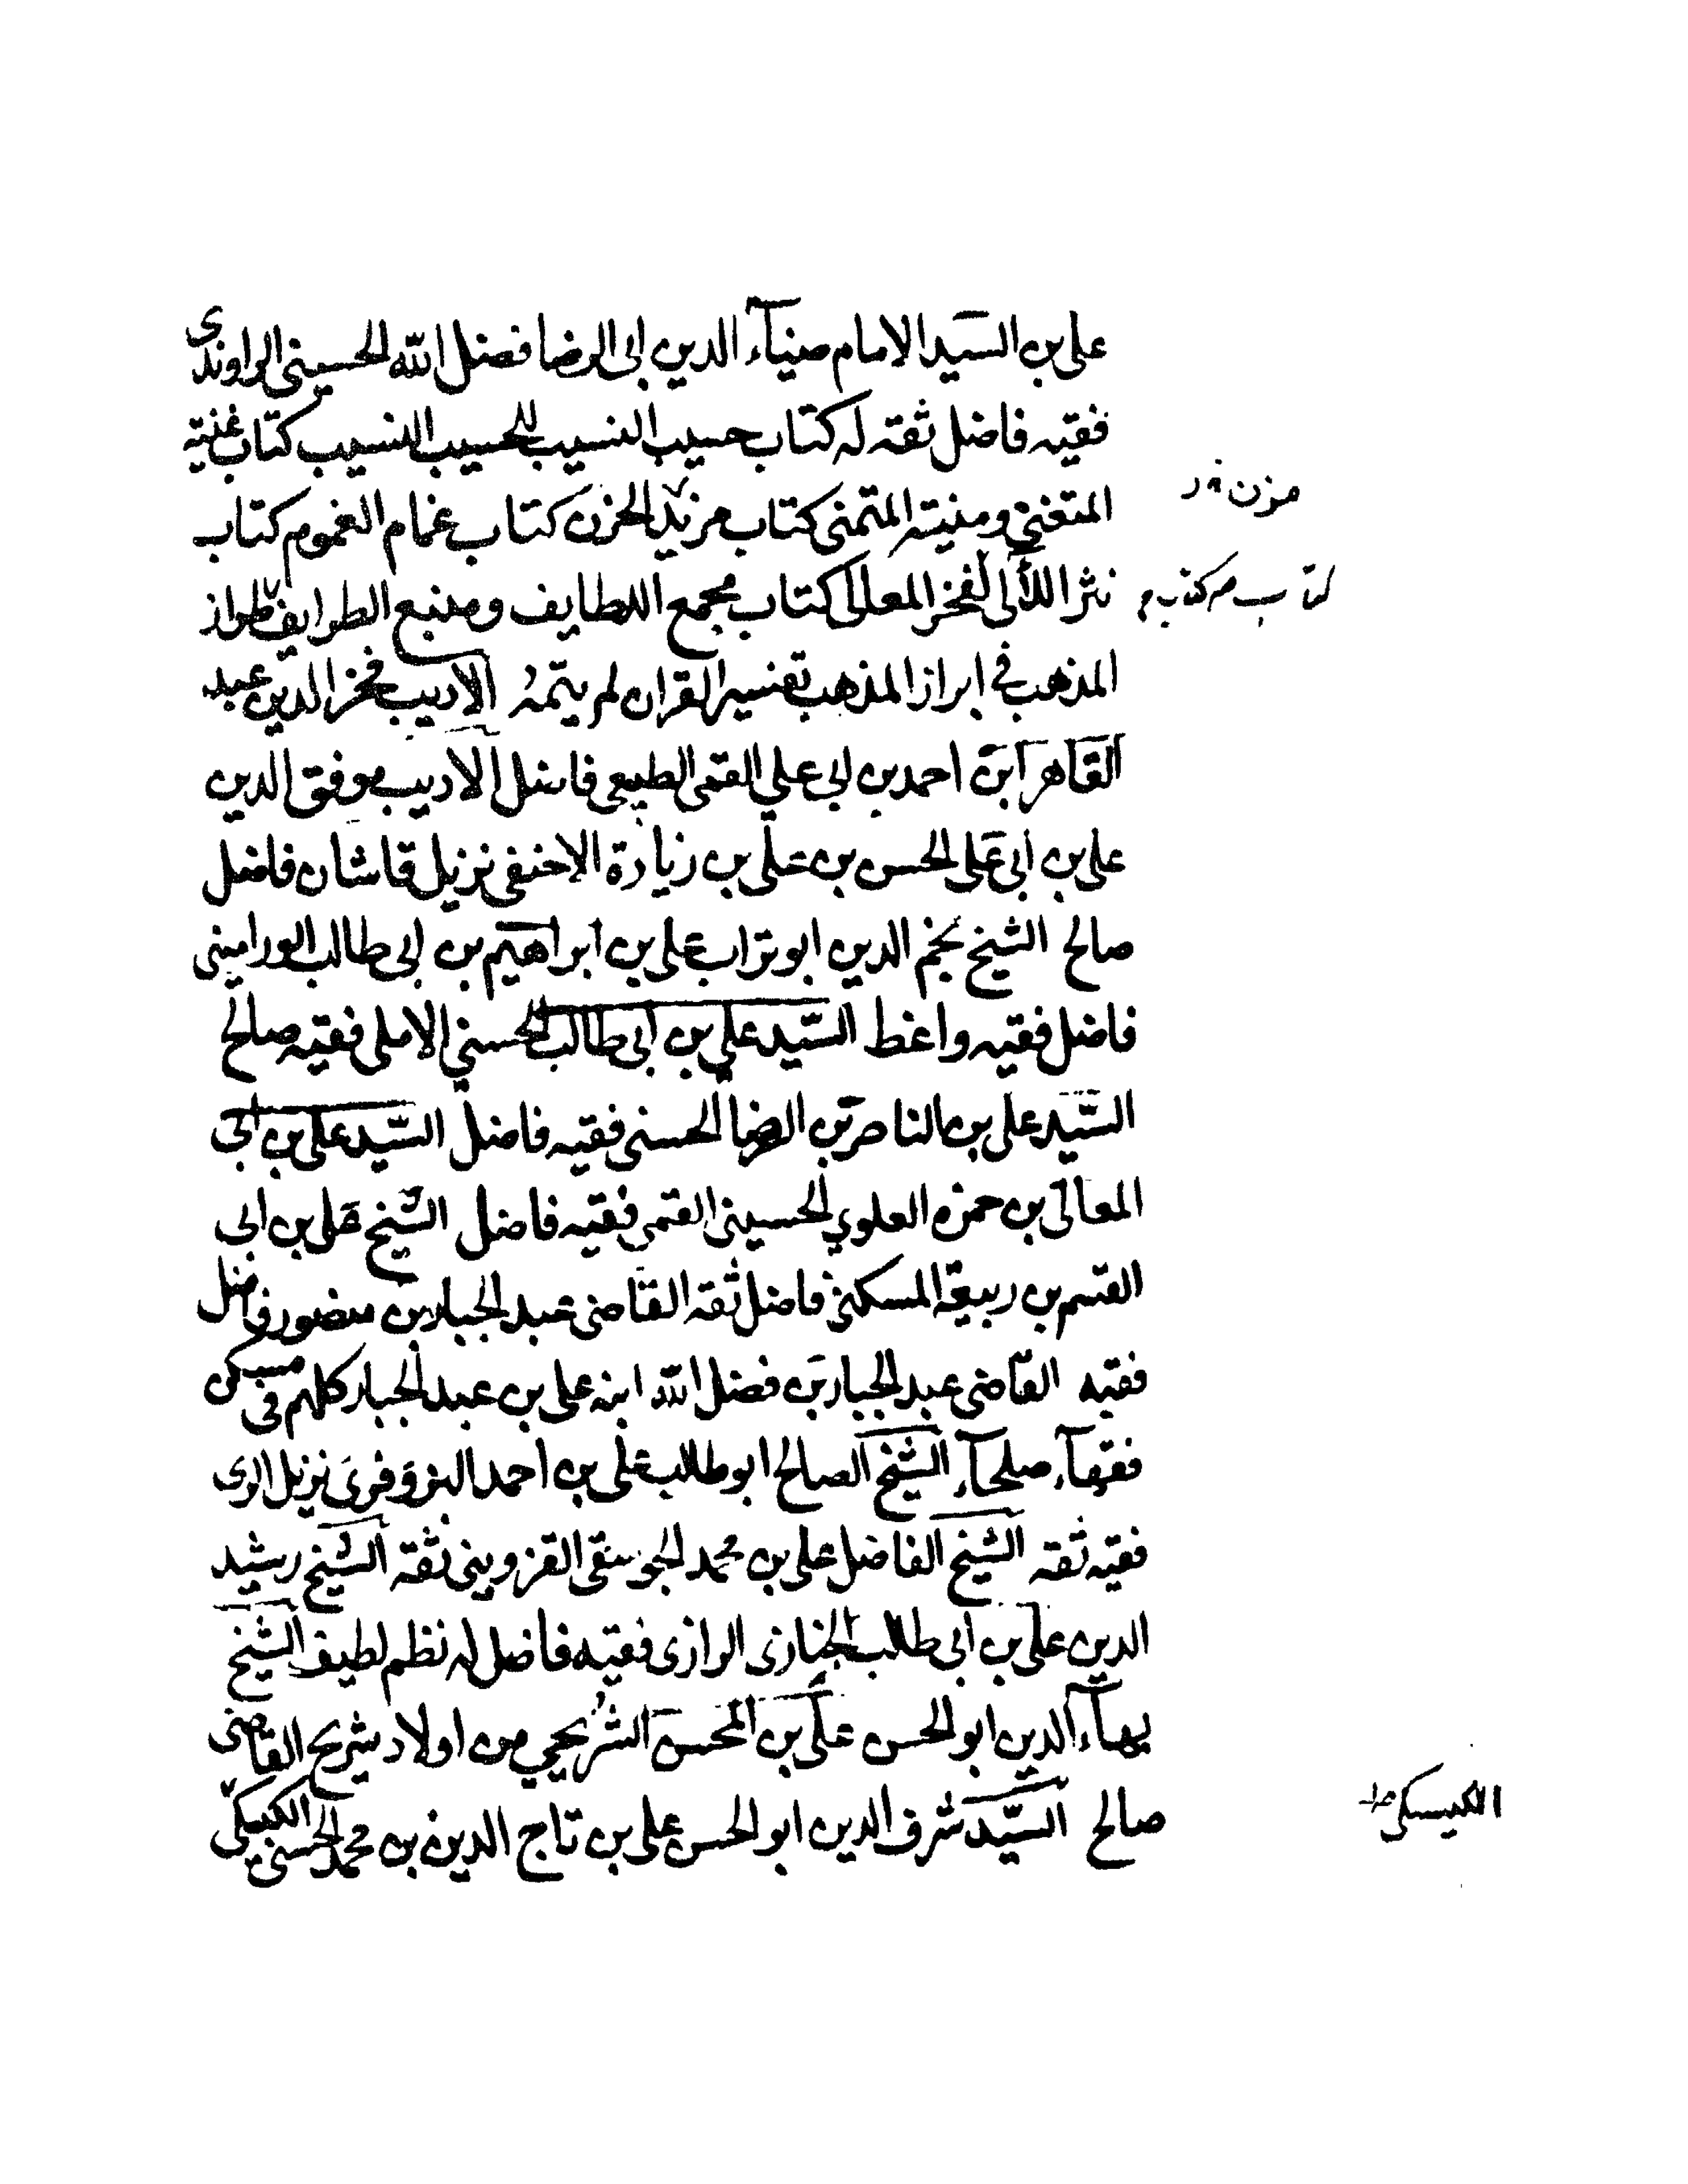 علي بن السيد الامام ضيآء الدين ابي الرضا فضل الله الحسيني الراوندي
فقيه فاضل ثقه له كتاب حسيب النسيب للحسيب النسيب كتاب غنية
المتغني ومنيته المتمنى كتاب مزيد الحزن كتاب غمام الغموم كتاب
مزن
نثر اللألى لفخر المعالى كتاب مجمع اللطايف ومنبع الطرايف طراز
المذهب في ابراز المذهب تفسير القران لم يتمه الاديب فخر الدين عبد
القاهر ابن احمد بن ابي علي القمى الطبيعى فاضل الاديب موفق الدين
على بن ابي على الحسن بن على بن زيادة الاحنفى نزيل قاشان فاضل
صالح الشيخ نجم الدين ابو تراب على بن ابراهيم بن ابى طالب الورامينى
فاضل فقيه واعظ السيد على بن ابى طالب الحسني الاملى فقيه صالح
السيد على بن الناصر بن الرضا الحسنى فقيه فاضل السيد على بن ابى
المعالى بن حمزه العلوي الحسينى القمى فقيه فاضل الشيخ على بن ابى
القسم بن ربيعة المسكنى فاضل ثقه القاضى عبد الجبار بن منصور فاضل
فقيه القاضى عبد الجبار بن فضل الله ابنه على بن عبد الجبار كلهم فى مسكن
فقهآء صلحآء الشيخ الصالح ابو طالب على بن احمد البزوفرى نزيل الرى
فقيه ثقه الشيخ الفاضل على بن محمد الجوسقى القزوينى ثقة الشيخ رشيد
الدين على بن ابى طالب الخبازى الرازى فقيه فاضل له نظم لطيف الشيخ
بهآء الدين ابو الحسن على بن المحسن الشريحي من اولاد شريح القاضى
صالح السيد شرف الدين ابو الحسن على بن تاج الدين بن محمد الحسنى الكيسكى
الكيسكى